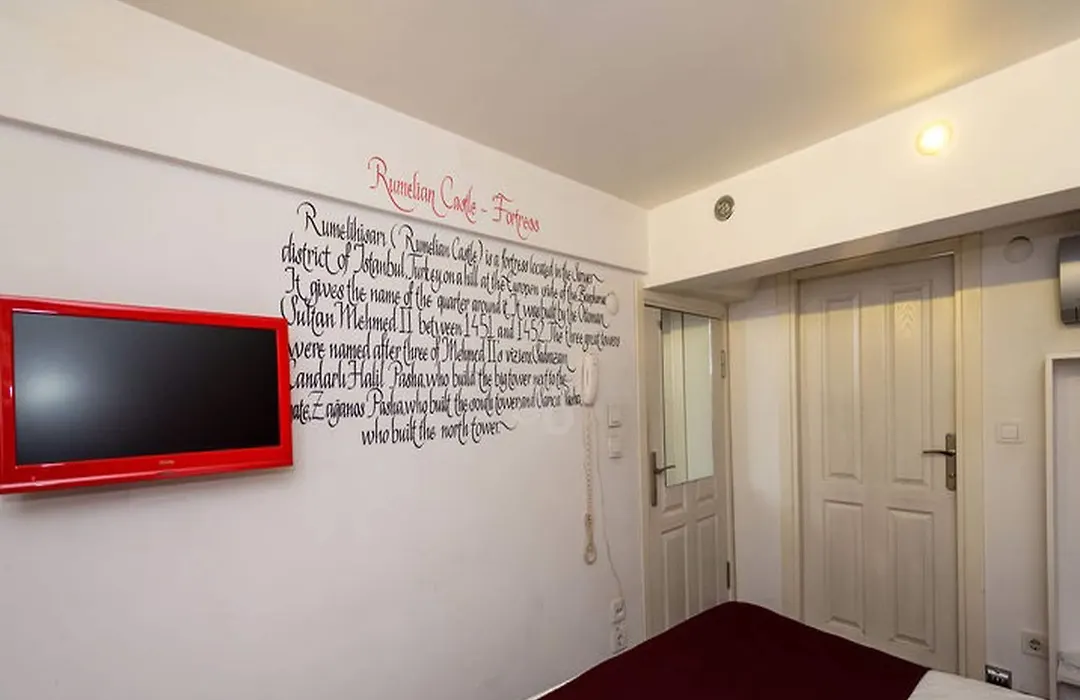 Rumelian Castle - Fortress
Rumelihisarı ( Rumelian Castle ) is a fortress located in the Sarıyer
district of Istanbul, Turkey, on a hill at the European side of the Bosphorus
It gives the name of the quarter around it. It was built by the Ottoman
Sultan Mehmed II between 1451 and 1452. The three great towers
were named after three of Mehmed II's viziers,
Candarlı Halil Pasha, who build the big tower next to the
Zağanos Pasha, who built the south tower and Sarıca Pasha
who built the north tower.